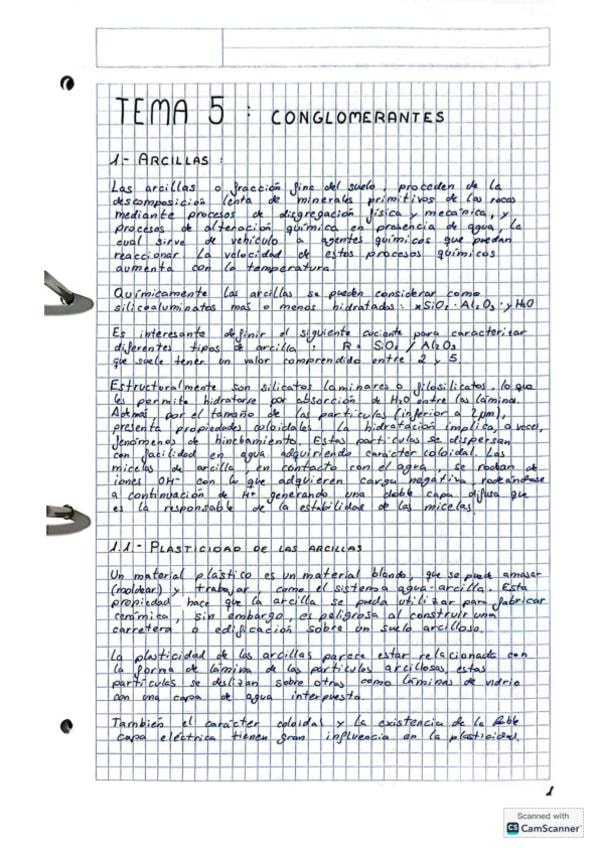 TEMA 5 : CONGLOMERANTES
1.- ARCILLAS :
Las arcillas o fracción fina del suelo, proceden de la
descomposición lenta de minerales primitivos de las rocas
mediante procesos de disgregación física y mecánica, y
procesos de alteración química en presencia de agua, la
cual sirve de vehículo a agentes químicos que puedan
reaccionar. La velocidad de estos procesos químicos
aumenta con la temperatura.
Químicamente las arcillas se pueden considerar como
silicoaluminatos más o menos hidratados: xSiO₂ · Al₂O₃ · yH₂O
Es interesante definir el siguiente cociente para caracterizar
diferentes tipos de arcilla : R = SiO₂ / Al₂O₃
que suele tener un valor comprendido entre 2 y 5.
Estructuralmente son silicatos laminares o filosilicatos, lo que
les permite hidratarse por absorción de H₂O entre las láminas.
Además, por el tamaño de las partículas (inferior a 2µm),
presenta propiedades coloidales. La hidratación implica, a veces,
fenómenos de hinchamiento. Estas partículas se dispersan
con facilidad en agua adquiriendo carácter coloidal. Las
micelas de arcilla, en contacto con el agua, se rodean de
iones OH⁻ con lo que adquieren carga negativa, rodeándose
a continuación de H⁺ generando una doble capa difusa que
es la responsable de la estabilidad de las micelas.
1.1.- PLASTICIDAD DE LAS ARCILLAS
Un material plástico es un material blando, que se puede amasar
(moldear) y trabajar como el sistema agua-arcilla. Esta
propiedad hace que la arcilla se pueda utilizar para fabricar
cerámica, sin embargo, es peligrosa al construir una
carretera o edificación sobre un suelo arcilloso.
La plasticidad de las arcillas parece estar relacionada con
la forma de lámina de las partículas arcillosas, estas
partículas se deslizan sobre otras como láminas de vidrio
con una capa de agua interpuesta.
También el carácter coloidal y la existencia de la doble
capa eléctrica tienen gran influencia en la plasticidad.
1
Scanned with
CS CamScanner